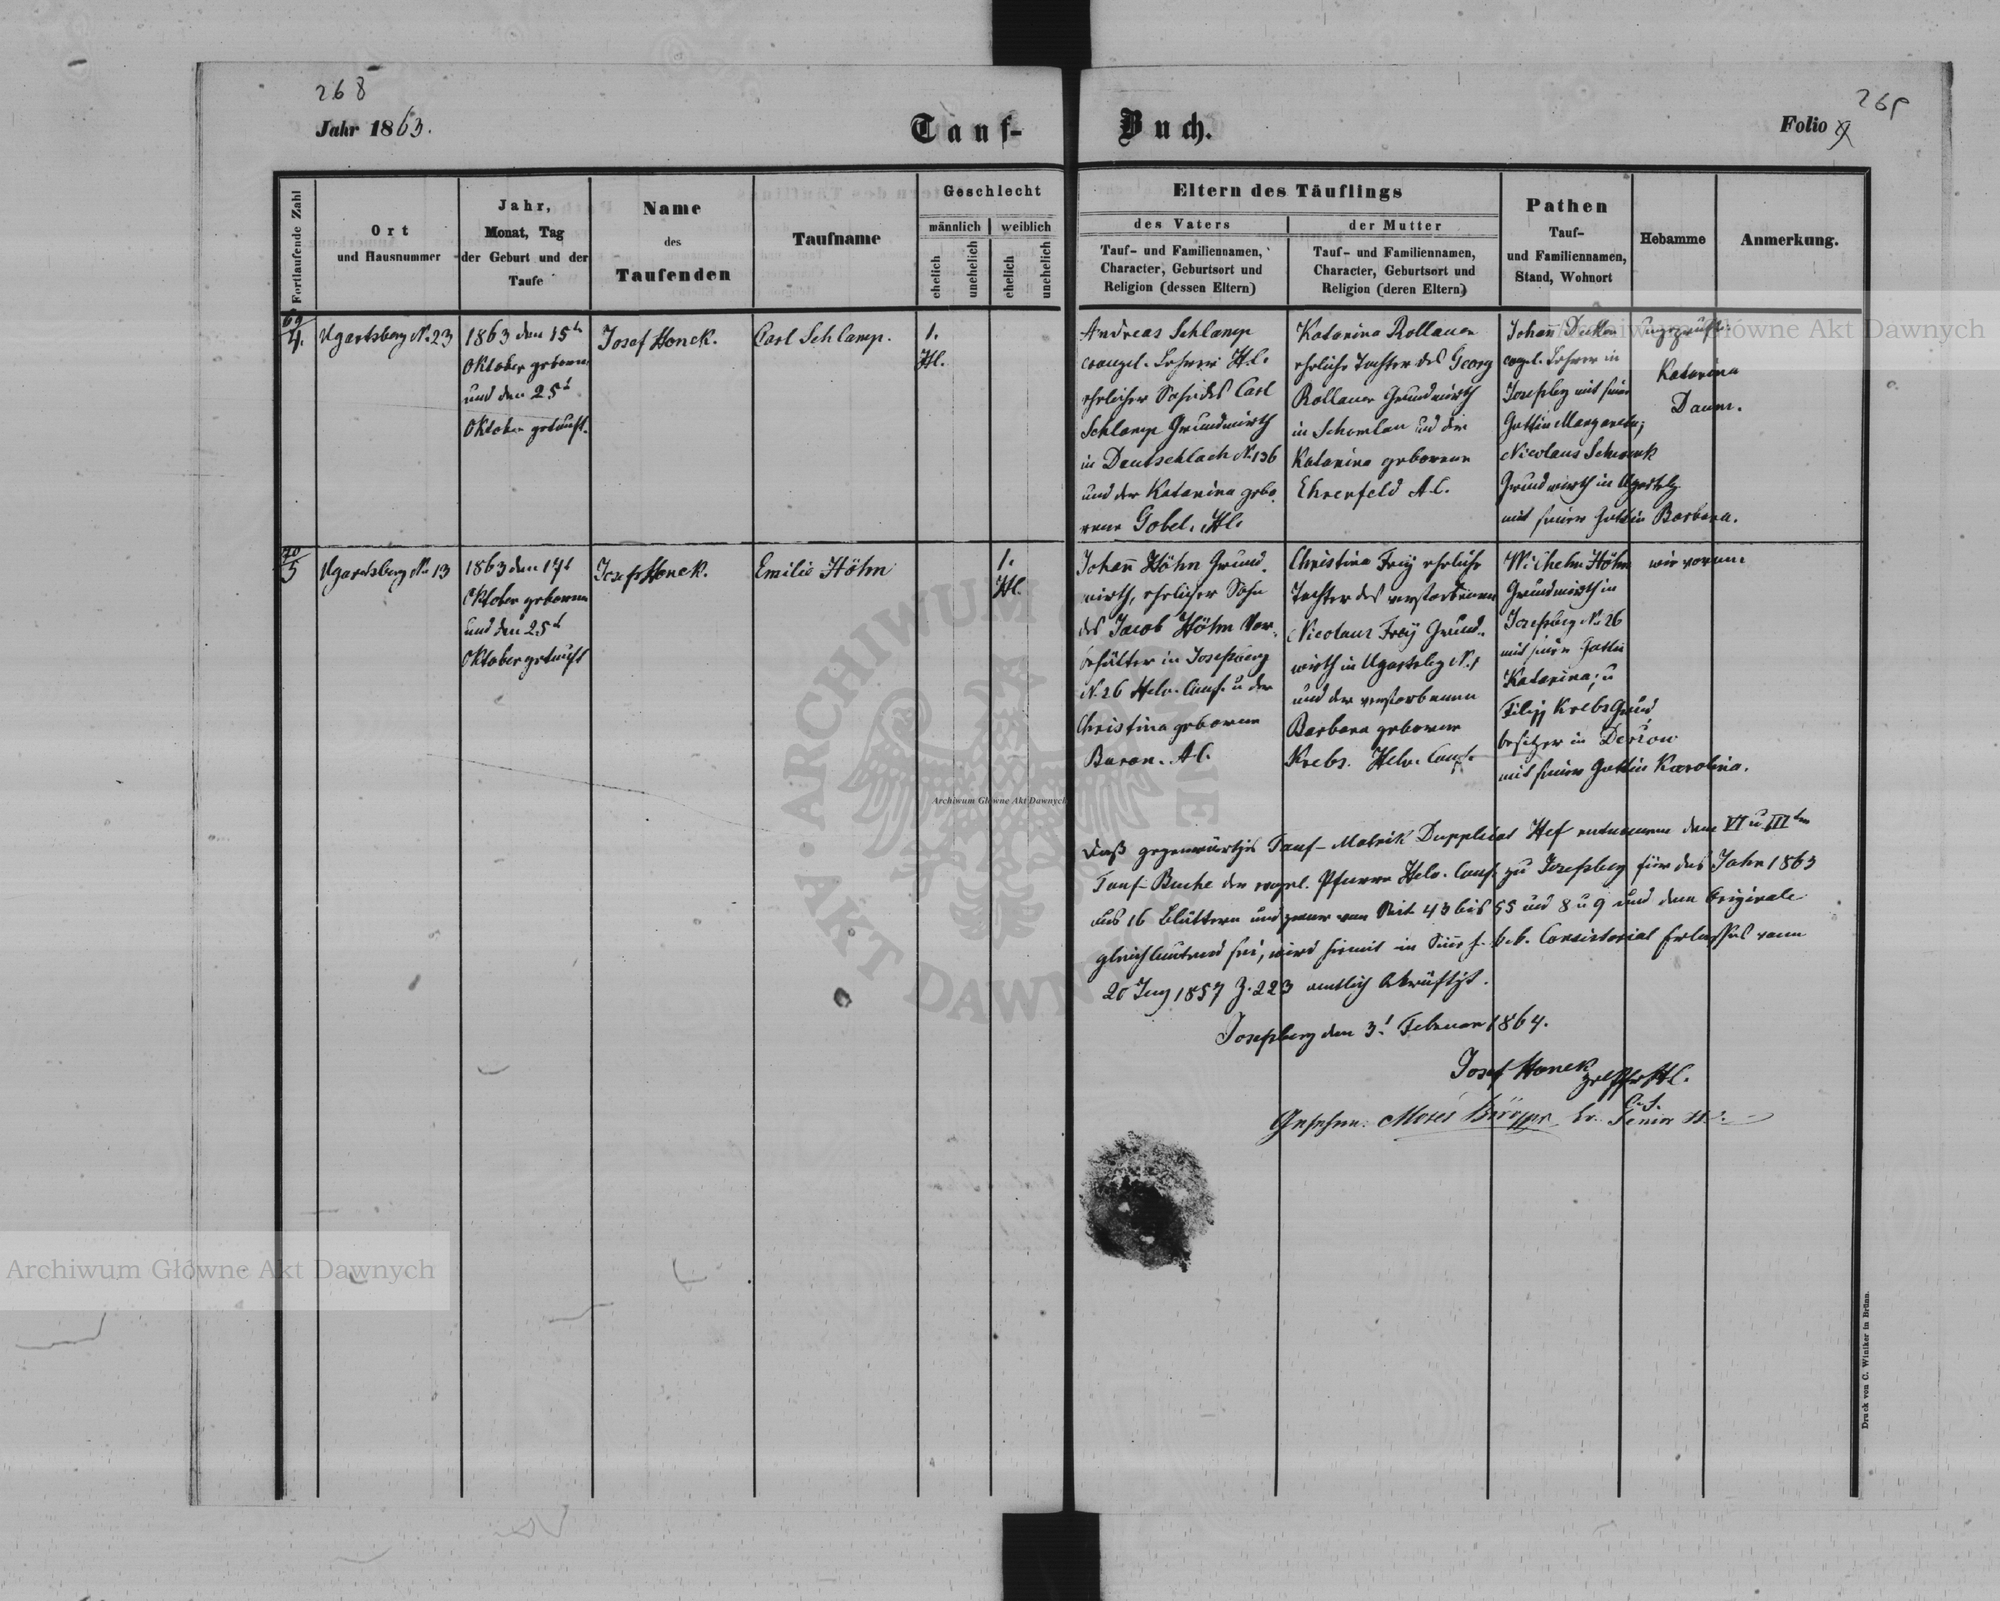 268
Jahr 1863.
Tauf-
Buch.
Folio 9
269
Fortlaufende Zahl
Ort
und Hausnummer
Jahr,
Monat, Tag
der Geburt und der
Taufe
Name
des
Taufenden
Taufname
Geschlecht
männlich
weiblich
ehelich
unehelich
ehelich
unehelich
Eltern des Täuflings
des Vaters
Tauf- und Familiennamen,
Character, Geburtsort und
Religion (dessen Eltern)
der Mutter
Tauf- und Familiennamen,
Character, Geburtsort und
Religion (deren Eltern)
Pathen
Tauf-
und Familiennamen,
Stand, Wohnort
Hebamme
Anmerkung.
69
4.
Ugartsberg N. 23
1863 den 15t
Oktober geboren
und den 25t
Oktober getauft.
Josef Honek.
Carl Schlamp.
1.
Hl.
Andreas Schlamp
evangel. Lehrer Hl.
ehelicher Sohn des Carl
Schlamp Grundwirth
in Deutschlach N. 136
und der Katarina gebo-
rene Gobel. Hl.
Katarina Rollauer
eheliche Tochter des Georg
Rollauer Grundwirth
in Schomlau und der
Katarina geborene
Ehrenfeld A.C.
Johann
evgel. Lehrer in
Josefsbg mit seiner
Gattin Margareta;
Nicolaus Schwenk
Grundwirth in Ugartsbg
mit seiner Gattin Barbara.
ungeprüft.
Katarina
Daum.
70
5
Ugartsberg N. 13
1863 den 17t
Oktober geboren
und den 25t
Oktober getauft
Josef Honek.
Emilie Höhn
1.
Hl.
Johann Höhn Grund-
wirth, ehelicher Sohn
des Jacob Höhn Vor-
behälter in Josefsberg
N. 26 Helv. Conf. u der
Christina geborene
Baron. A.C.
Christina Frey eheliche
Tochter des verstorbenen
Nicolaus Frey Grund-
wirth in Ugartsbg N. 1
und der verstorbenen
Barbara geborene
Krebs. Helv. Conf.
Wilhelm Höhn
Grundwirth in
Josefsbg N. 26
mit seiner Gattin
Katarina; u
Filipp Krebs Grund
besitzer in Derżow
mit seiner Gattin Karolina.
wie voran.
Daß gegenwärtiges Tauf-Matrik Duplicat Hef entnomen dem VI u III ten
Tauf-Buche der evgel. Pfarre Helv. Conf. zu Josefsberg für das Jahr 1863
aus 16 Blättern und zwar von Seit 43 bis 55 und 8 u 9 und dem Originale
gleichlautend sei, wird hiemit im Sinne h. k.k. Consistorial Erlasses vom
20 Juny 1857 Z. 223 amtlich bekräftigt.
Josefsberg den 3t Februar 1864.
Josef Honek
Pfr Hl.
Gesehen: Moses Senior
Druck von C. Winiker in Brünn.
Archiwum Główne Akt Dawnych
Archiwum Główne Akt Dawnych
Archiwum Główne Akt Dawnych
ARCHIWUM GŁÓWNE AKT DAWNYCH